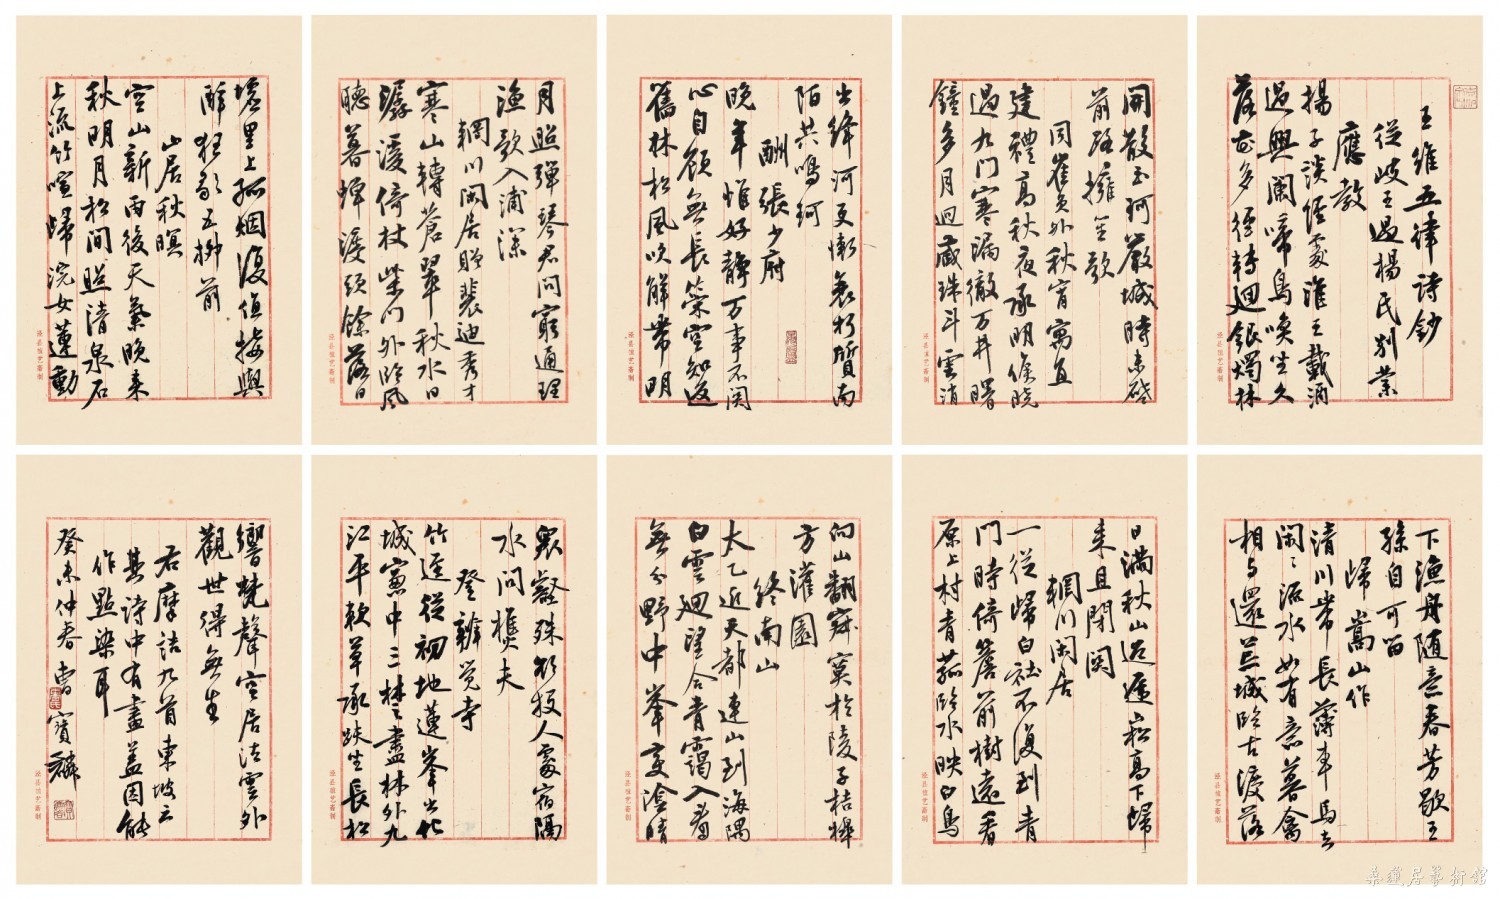 王維五律诗鈔
從岐王過楊氏别業
應教
揚子談經處淮王載酒
過興闌啼鳥喚坐久
落花多徑轉廻銀燭林
開散玉珂嚴城時未啓
前路擁笙歌
同崔员外秋宵寓直
建禮高秋夜承明候曉
過九門寒漏徹万井曙
鐘多月迥藏珠斗雲消
出絳河更慚衰朽質南
陌共鳴珂
酬張少府
晚年惟好静万事不関
心自顧無長策空知返
舊林松風吹解帶明
月照弹琴君问窮通理
渔歌入浦深
輞川闲居贈裴迪秀才
寒山轉蒼翠秋水日
潺湲倚杖柴门外临風
聽暮蝉渡頭餘落日
墟里上孤烟復值接輿
醉狂歌五柳前
山居秋暝
空山新雨後天氣晚来
秋明月松间照清泉石
上流竹喧歸浣女蓮動
下渔舟随意春芳歇王
孫自可留
歸嵩山作
清川帶長薄車馬去
闲々流水如有意暮禽
相与還荒城临古渡落
日满秋山迢遞嵩高下歸
来且閉関
輞川闲居
一從歸白社不復到青
門時倚簷前樹遠看
原上村青菰临水映白鳥
向山翻寂寞於陵子桔槔
方灌園
终南山
太乙近天都連山到海隅
白雲廻望合青靄入看
無分野中峯变陰晴
衆壑殊欲投人處宿隔
水问樵夫
登辨觉寺
竹迳從初地蓮峯出化
城窓中三楚盡林外九
江平軟草承趺坐長松
響梵聲空居法雲外
觀世得無生
右摩詰九首東坡云
其詩中有畫盖因能
作點染耳
癸未仲春曹寶麟
桑蓮居藝術館